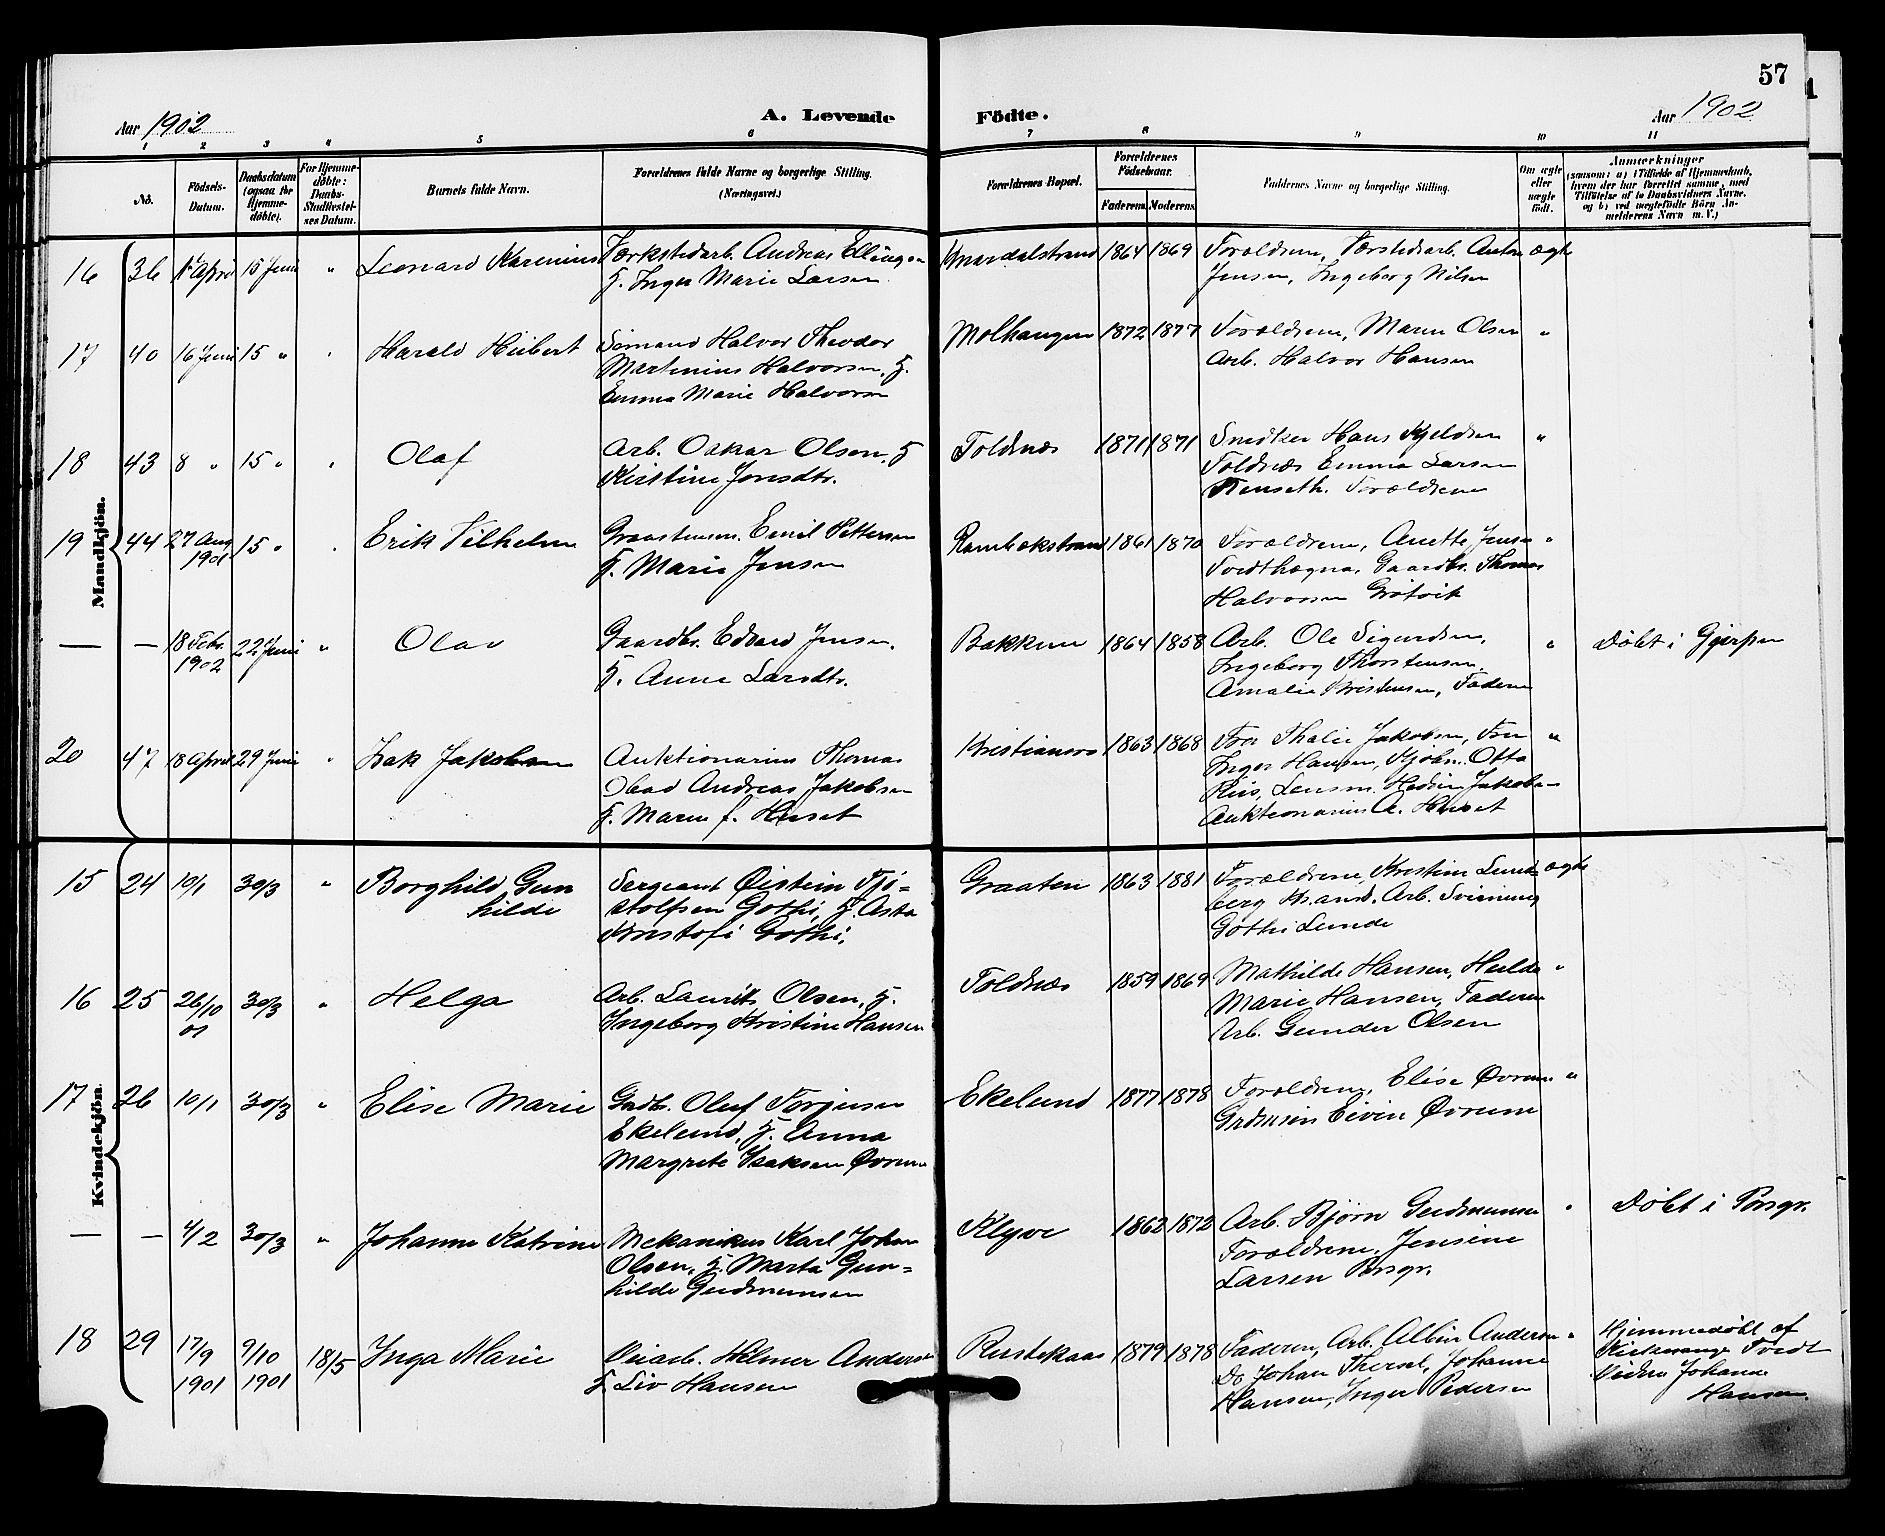 57
Aar 1902
A. Levende Födte.
Aar 1902
1 2 3 4 5 6 7 8 9 10 11
No.
Födsels-Datum.
Daabsdatum (ogsaa for Hjemmedöbte).
For Hjemmedöbte: Daabs-Stadfæstelses Datum.
Barnets fulde Navn.
Forældrenes fulde Navne og borgerlige Stilling. (Næringsvei.)
Forældrenes Bopæl.
Forældrenes Födselsaar.
Faderens. Moderens.
Faddernes Navne og borgerlige Stilling.
Om ægte eller uægte födt.
Anmærkninger
(saasom: a) i Tilfælde af Hjemmedaab, hvem der har forrettet samme, med Tilföielse af to Daabsvidners Navne, og b) ved uægtefödte Börn Anmelderens Navn m. V.)
Mandkjön.
16 36 1ste April 15 Juni " Leonard Karenius Værkstedarb. Andreas Ellingsen Knardalstrand 1864 1869 Forældrene, Værkstedarb. Anton ægte
H. Inger Marie Larsen Jensen, Ingeborg Nilsen
17 40 16 Juni 15 " " Harald Hubert Sömand Halvor Theodor Molhaugen 1872 1877 Forældrene, Maren Olsen "
Martinius Halvorsen, H. Arb. Halvor Hansen
Emma Marie Halvorsen
18 43 8 " 15 " " Olaf Arb. Oskar Olsen, H. Toldnæs 1871 1871 Snedker Hans Kjeldsen "
Kirstine Jensdtr. Toldnæs Emma Larsen
Forældrene
19 44 27 Aug 1901 15 " " Erik Vilhelm Graastensm. Emil Pettersen Rambekstrand 1861 1870 Forældrene, Anette Jensen "
H. Marie Jensen Gaardbr. Thomas
Halvorsen Grötvik
— — 18 Febr. 1902 22 Juni " Olav Gaardbr. Edvard Jensen, Bakken 1864 1858 Arb. Ole Sigurdsen, " Döbt i Gjerpen
H. Anne Larsdtr. Ingeborg Thorstensen,
Amalie Kristensen, Faderen
20 47 18 April 29 Juni " Isak Jakobsen Auktionarius Thomas Kristiansro 1863 1868 Fru Thalie Jakobsen, Fru "
Obad Andreas Jakobsen Inger Hansen, Kjöbm. Otto
H. Maren f. Huset Riis, Lensm. Hedin Jakobsen
Auktionarius A. Huset
Kvindekjön.
15 24 10/1 30/3 " Borghild Gunhilde Sergeant Øistein Tjö- Graaten 1863 1881 Forældrene, Kristine Lundberg ægte
stolfsen Gothi, H. Asta Kr.sand, Arb. Svinung
Kristofi Gothi. Gothi Lunde
16 25 26/10 01 30/3 " Helga Arb. Laurits Olsen, H. Toldnæs 1859 1869 Mathilde Hansen, Hulda "
Ingeborg Kristine Hansen Marie Hansen, Faderen
Arb. Gunder Olsen
17 26 10/1 30/3 " Elise Marie Grdbr. Oluf Torjusen Ekelund 1877 1878 Forældrene, Elise Øvrum "
Ekelund, H. Anna Grdmsön Eivin Øvrum
Margrete Isaksen Øvrum
— — 4/2 30/3 " Johanne Katrine Mekanikus Karl Johan Klyve 1862 1872 Arb. Björn Gudmunsen " Döbt i Porsgr.
Olsen, H. Marta Gun- Forældrene, Jensine
hilde Gudmunsen Larsen Porsgr.
18 29 17/9 1901 9/10 1901 18/5 Inga Marie Veiarb. Hilmer Andersen Rustekaas 1879 1878 Faderen, Arb. Albin Andersen " Hjemmedöbt af
H. Liv Hansen Do Johan Johanne Kirkesanger Tvedt
Hansen, Inger Pedersen Vidne Johanne
Hansen